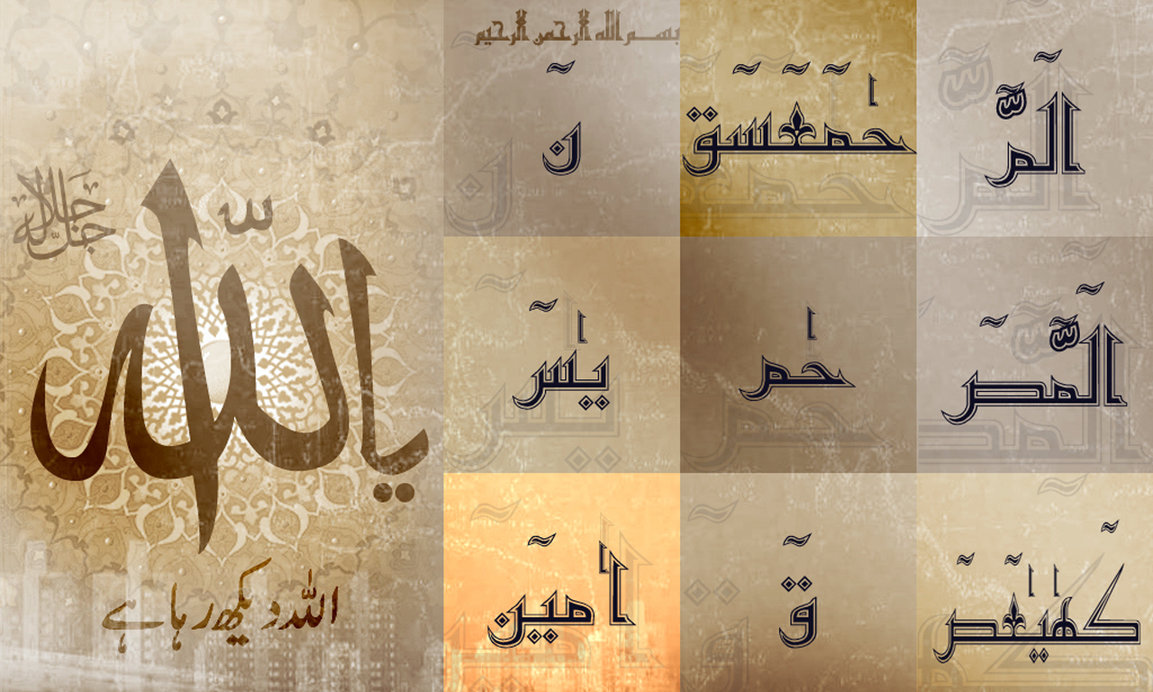 بسم الله الرحمن الرحيم
الٓمّ
حٰمٓعٓسٓق
نٓ
الٓمّٓصٓ
حٰم
يٰسٓ
كٓهٰيٰعٓصٓ
قٓ
اٰمين
جل جلاله
يا الله
اللہ دیکھ رہا ہے